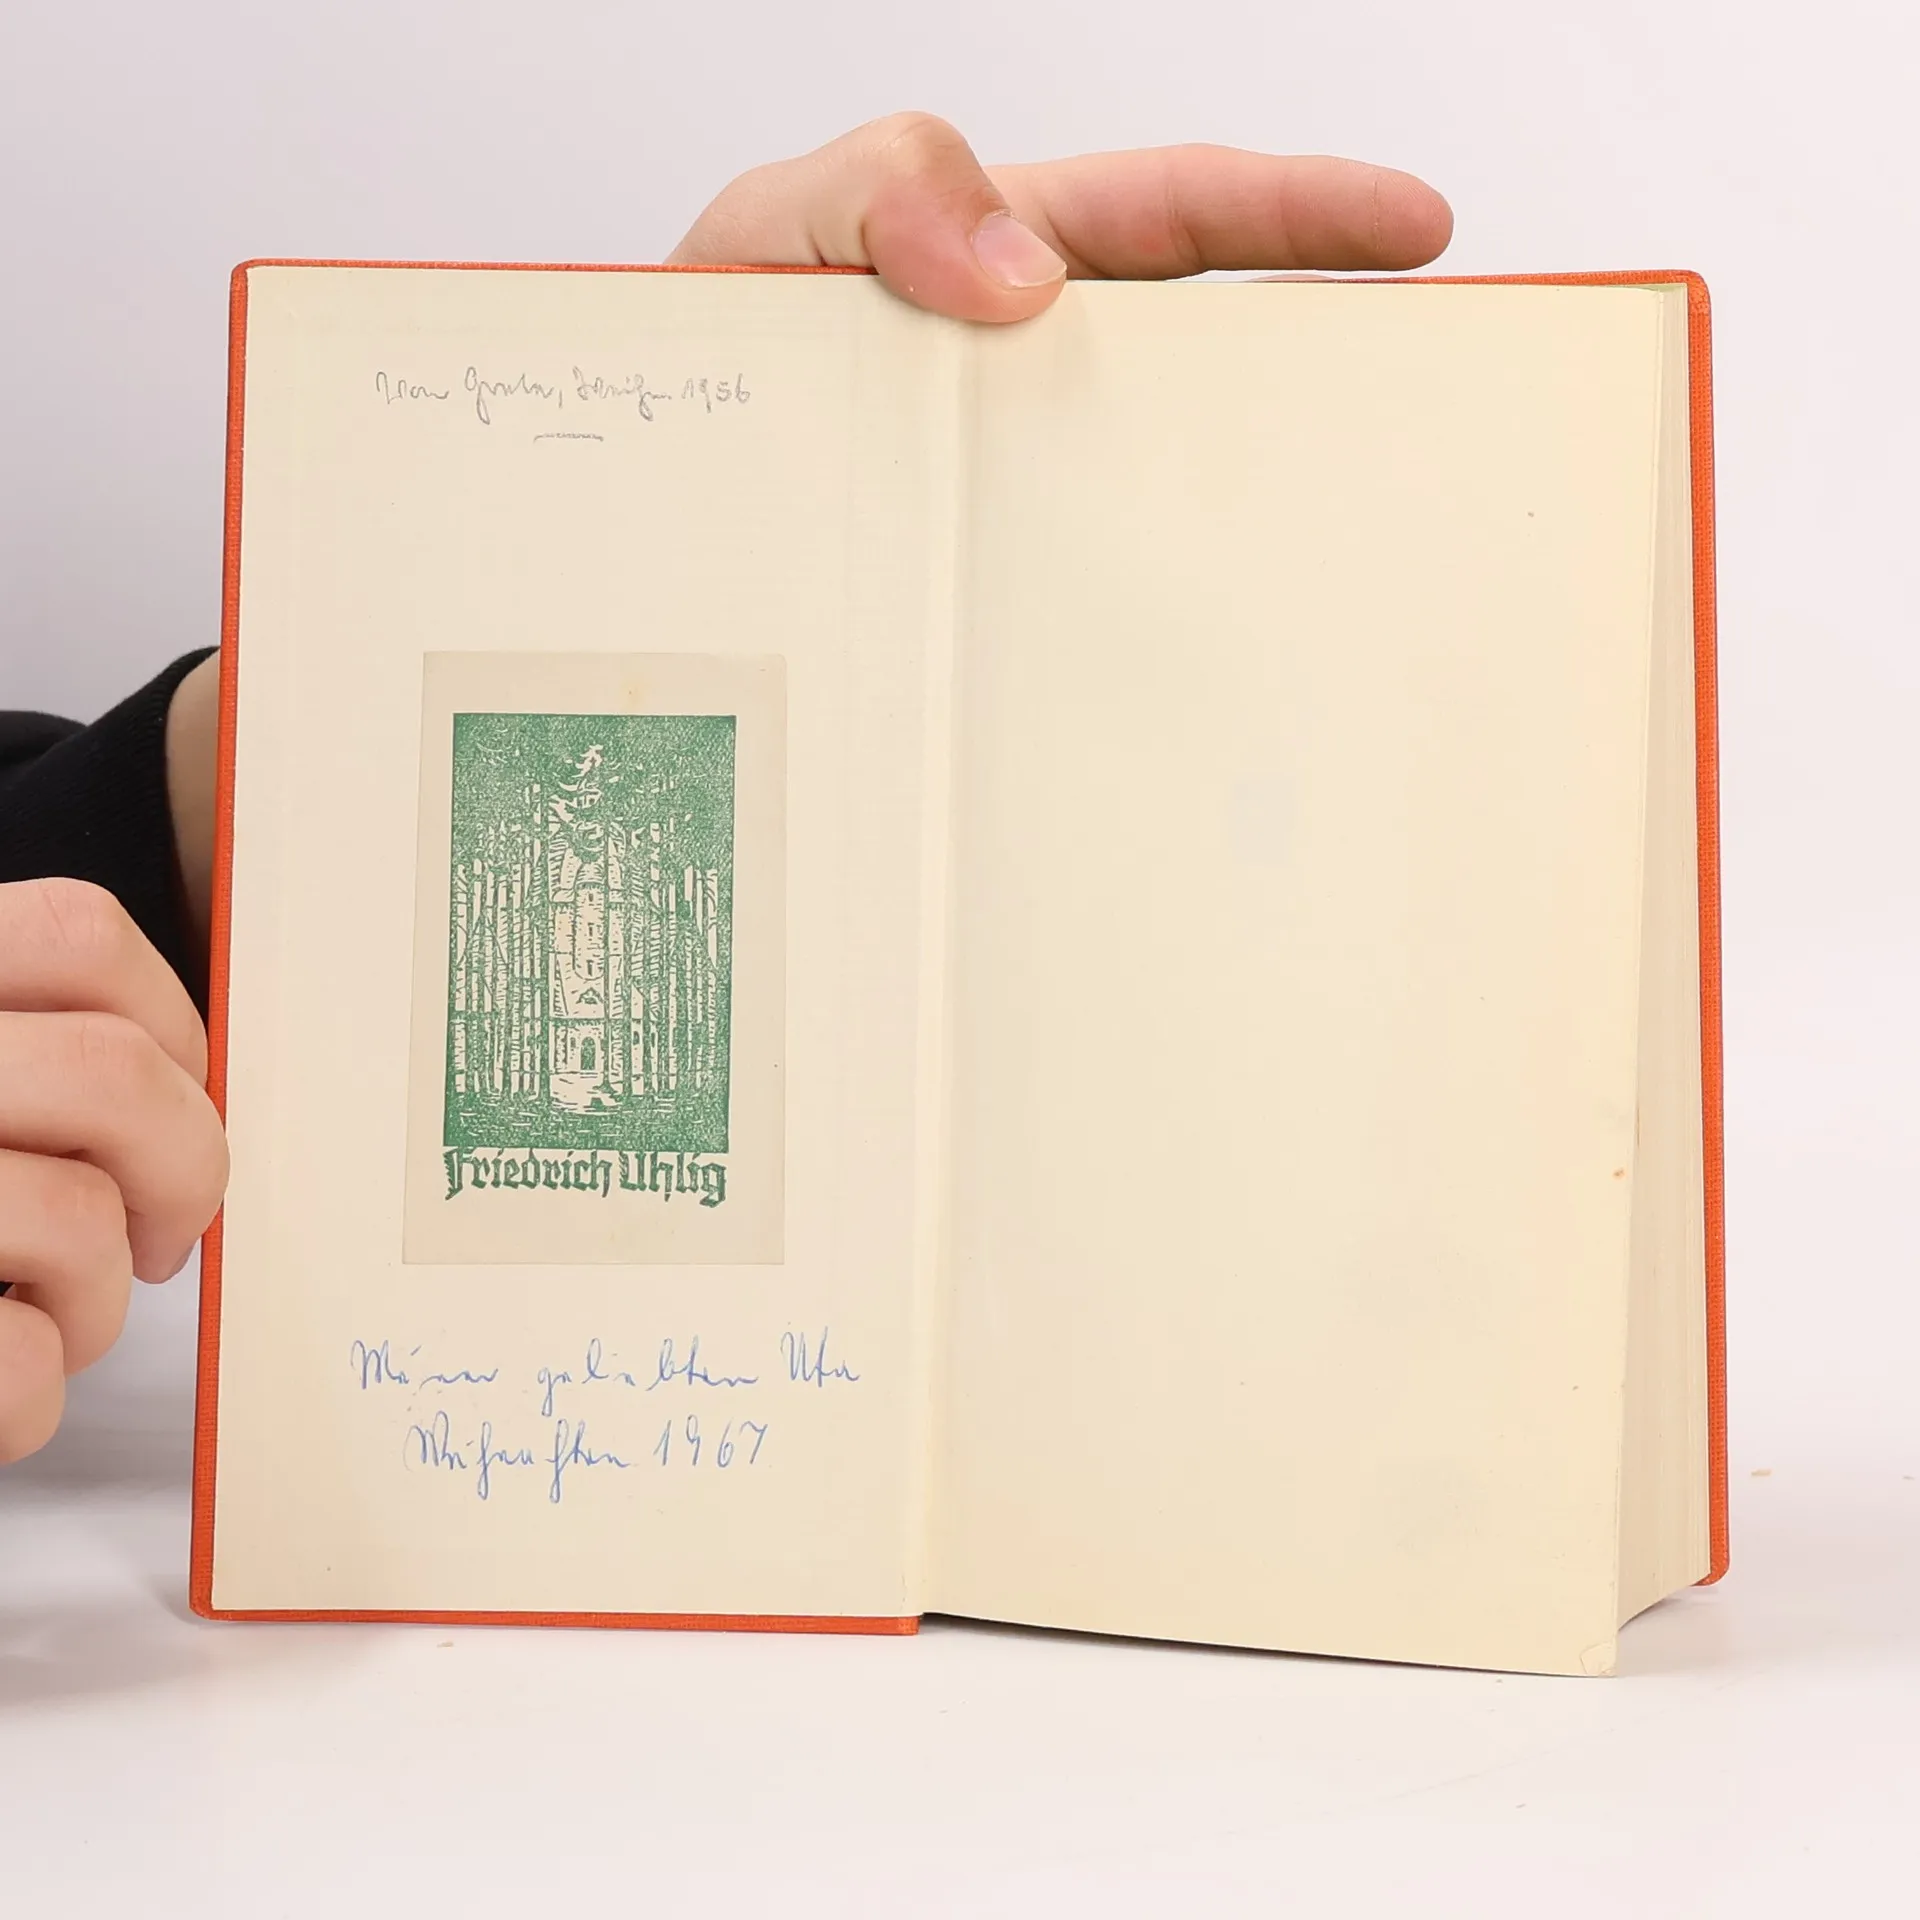 Von Grete, 1956
Friedrich Uhlig
Meiner geliebten Uta
Weihnachten 1967